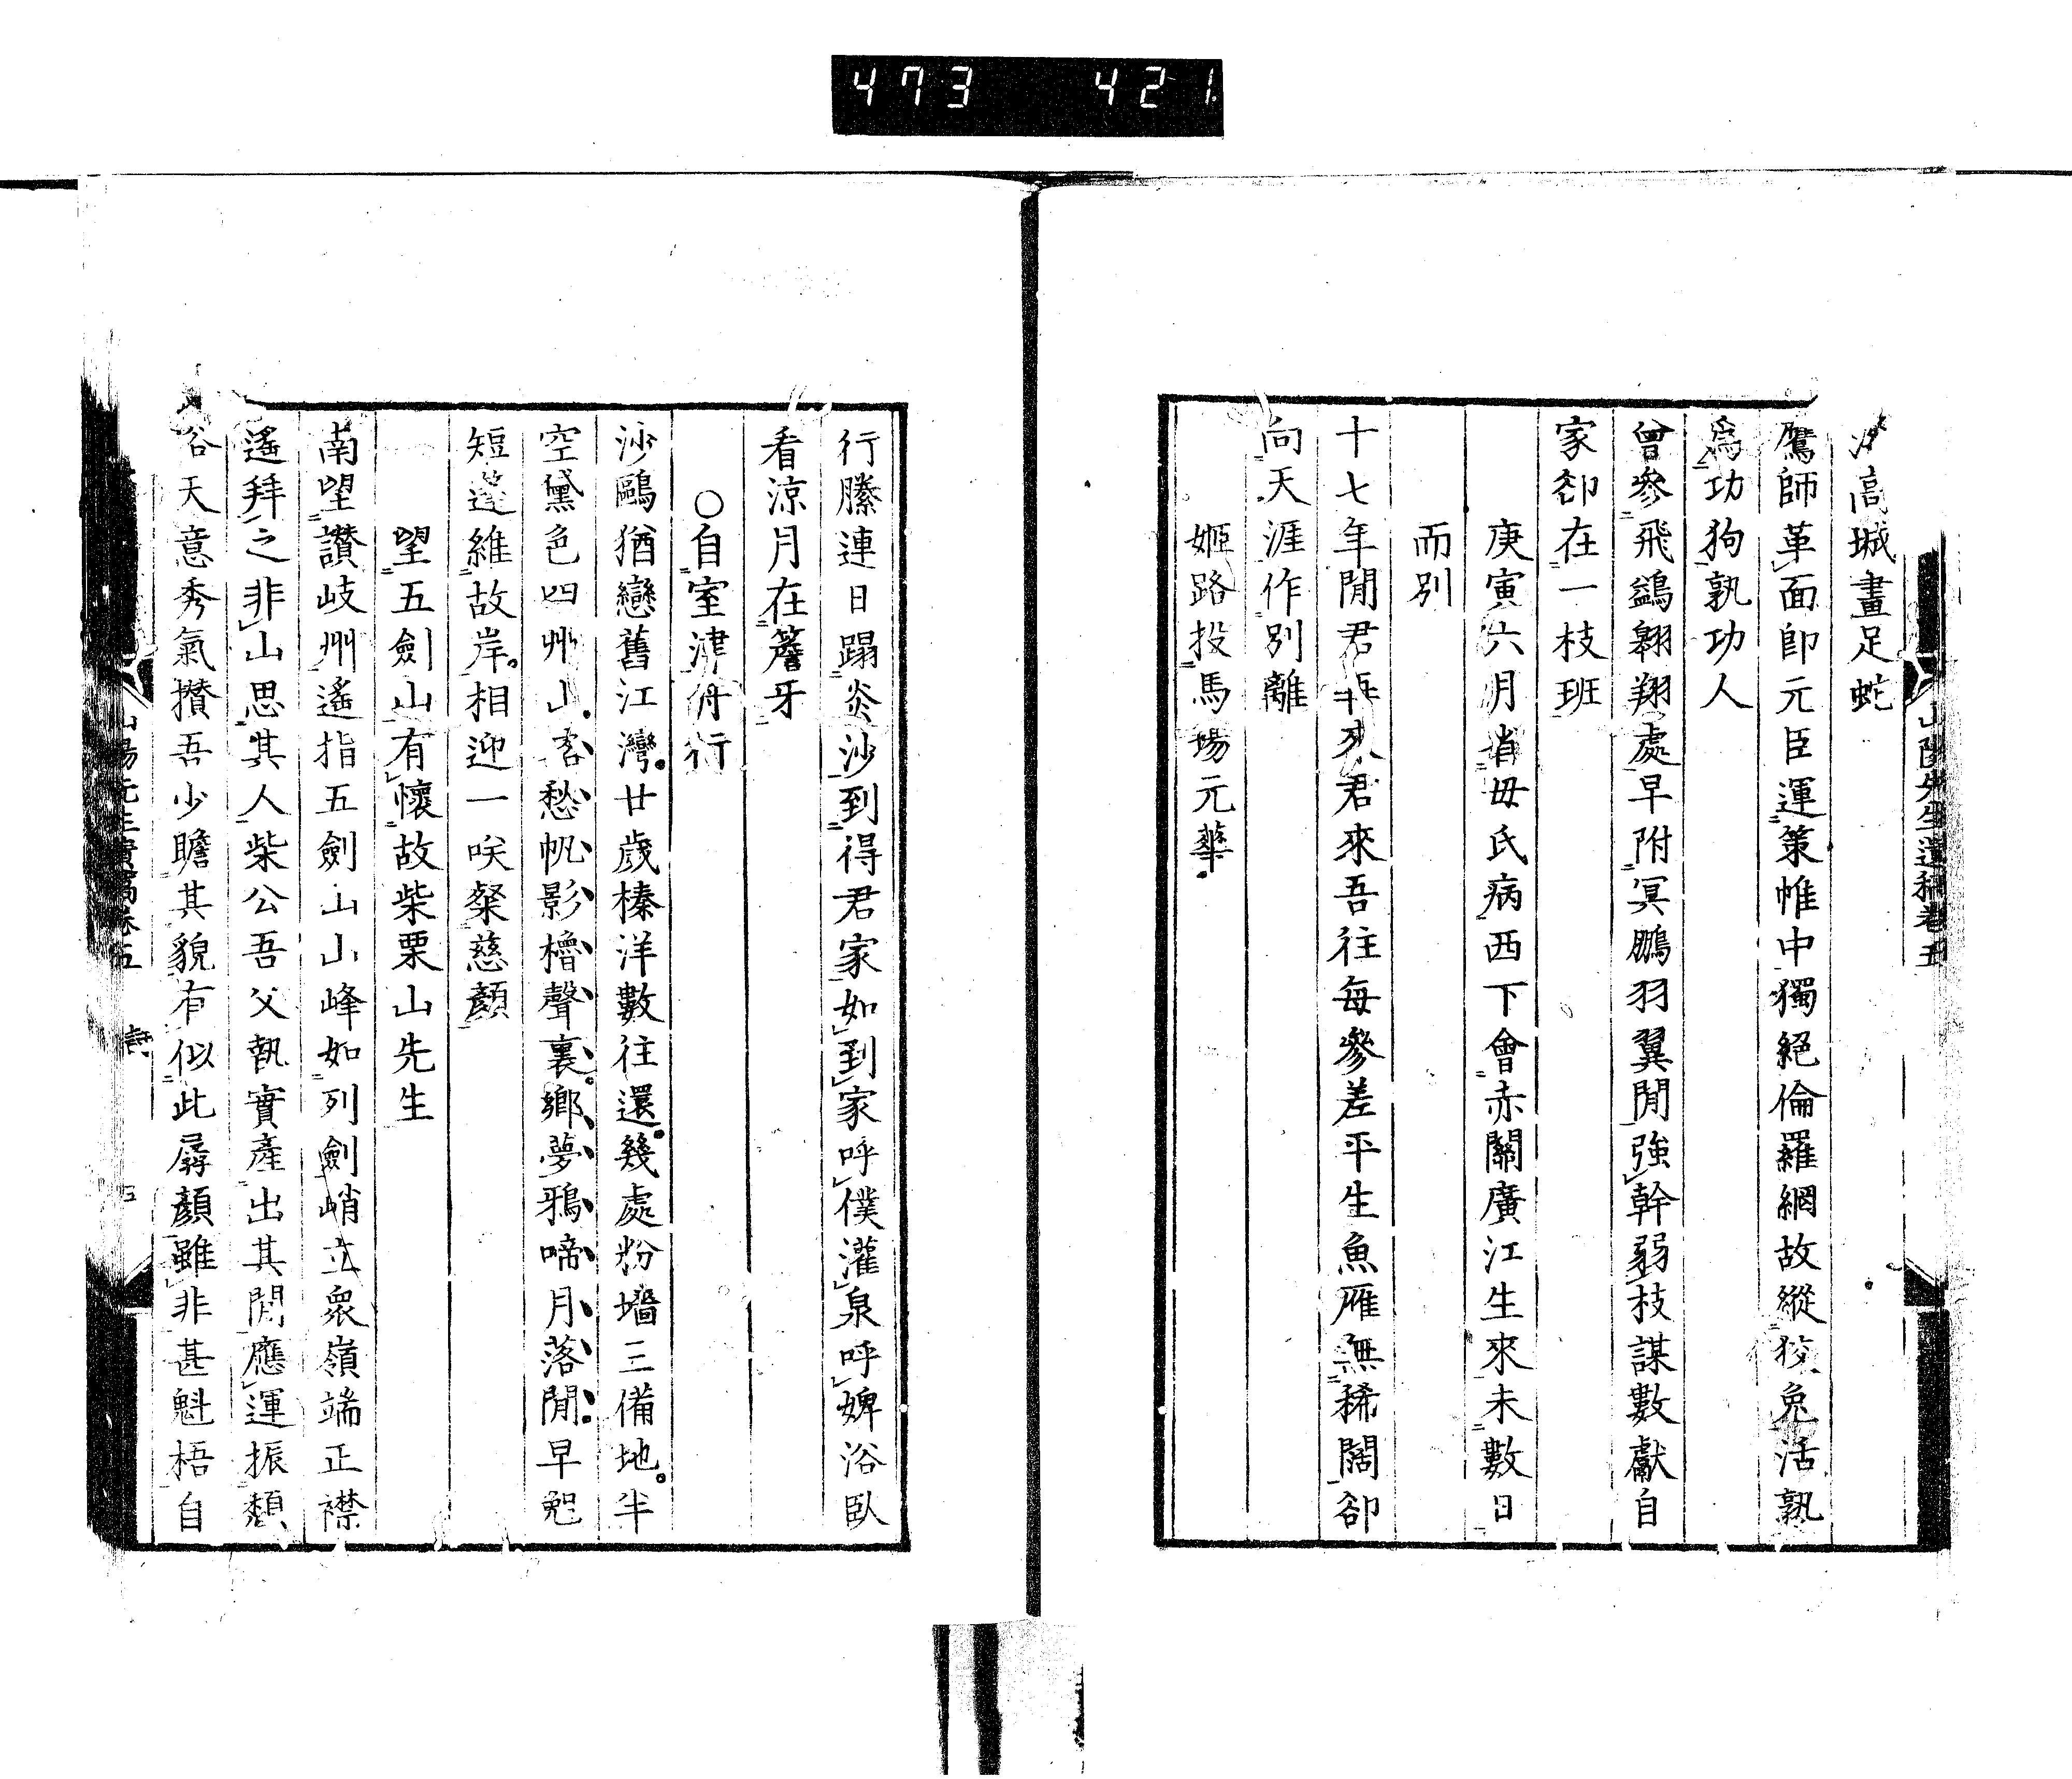 473 421
山陽先生遺稿卷五
高城畫足蛇
鷹師革面即元臣運策帷中獨絕倫羅網故縱狡兔活孰
爲功狗孰功人
曾參飛鷁翱翔處早附冥鵬羽翼閒強幹弱枝謀數獻自
家卻在一枝班
庚寅六月省母氏病西下會赤關廣江生來未數日
而別
十七年閒君再來君來吾往每參差平生魚雁無稀闊卻
向天涯作別離
姬路投馬場元華
行縢連日蹋炎沙到得君家如到家呼僕灌泉呼婢浴臥
看涼月在簷牙
○自室津舟行
沙鷗猶戀舊江灣廿歲榛洋數往還幾處粉墻三備地半
空黛色四州山客愁帆影櫓聲裏鄉夢鴉啼月落閒早晚
短蓬維故岸相迎一咲粲慈顏
望五劍山有懷故柴栗山先生
南望讚岐州遙指五劍山山峰如列劍峭立衆嶺端正襟
遙拜之非山思其人柴公吾父執實產出其閒應運振頹
俗天意秀氣攢吾少瞻其貌有似此孱顏雖非甚魁梧自
山陽先生遺稿卷五 詩